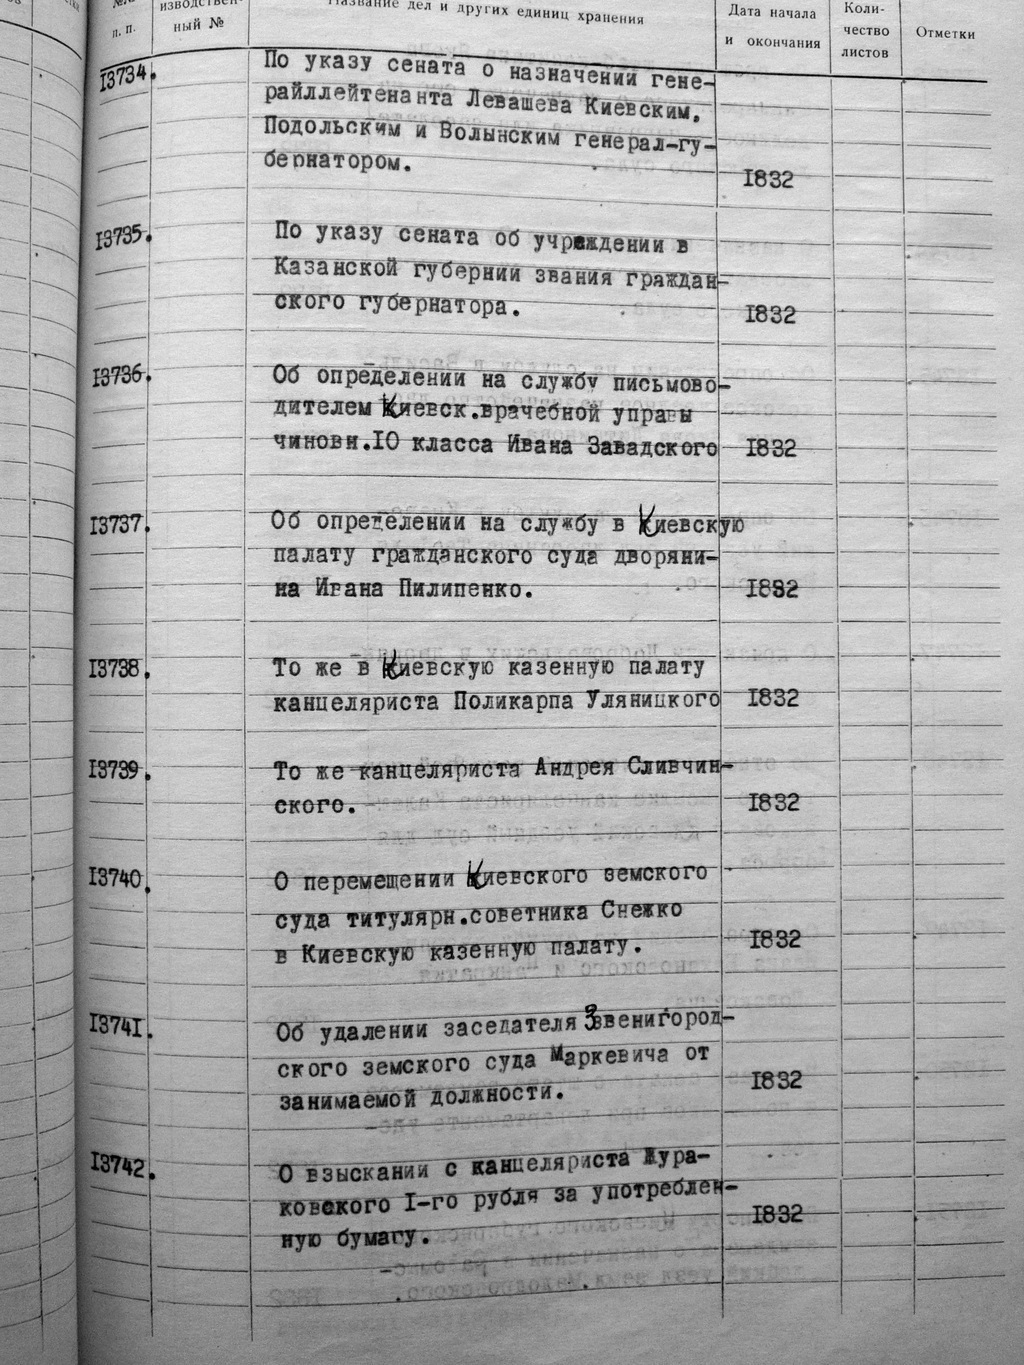 п. п.
ный №
Название дел и других единиц хранения
Дата начала
и окончания
Коли-
чество
листов
Отметки
13734.
По указу сената о назначении гене-
райллейтенанта Левашева Киевским,
Подольским и Волынским генерал-гу-
бернатором.
1832
13735.
По указу сената об учреждении в
Казанской губернии звания граждан-
ского губернатора.
1832
13736.
Об определении на службу письмово-
дителем Киевск.врачебной управы
чиновн.10 класса Ивана Завадского
1832
13737.
Об определении на службу в Киевскую
палату гражданского суда дворяни-
на Ивана Пилипенко.
1832
13738.
То же в Киевскую казенную палату
канцеляриста Поликарпа Уляницкого
1832
13739.
То же канцеляриста Андрея Сливчин-
ского.
1832
13740.
О перемещении Киевского земского
суда титулярн.советника Снежко
в Киевскую казенную палату.
1832
13741.
Об удалении заседателя Звенигород-
ского земского суда Маркевича от
занимаемой должности.
1832
13742.
О взыскании с канцеляриста Жура-
ковского 1-го рубля за употреблен-
ную бумагу.
1832